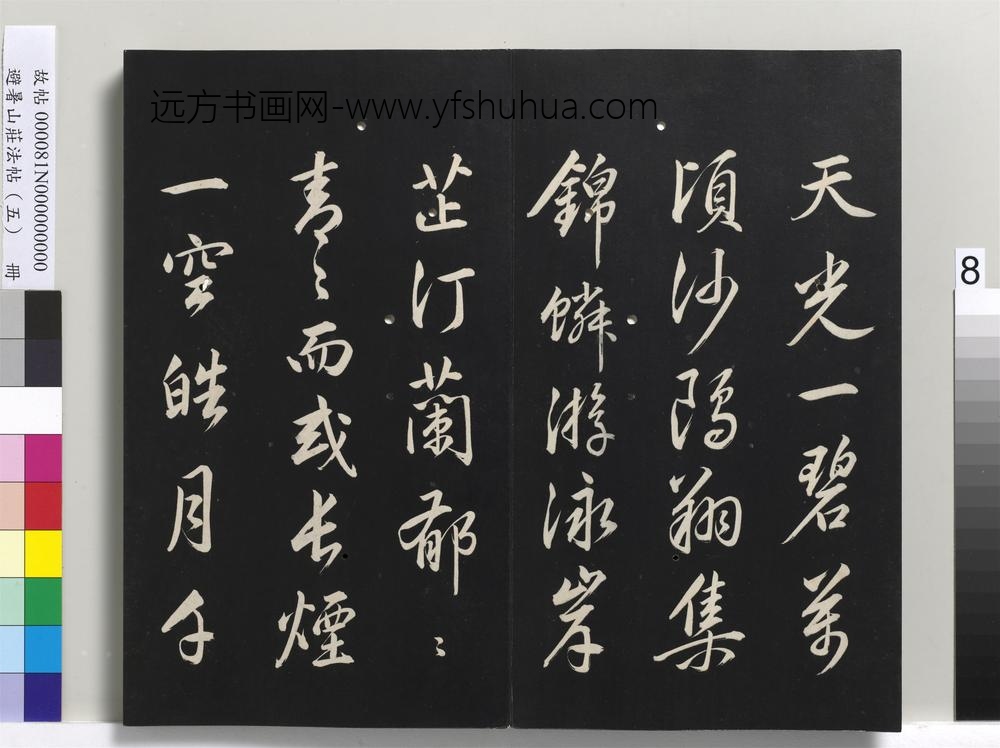 天光一碧萬
頃沙鷗翔集
錦鱗游泳岸
芷汀蘭郁〻
青〻而或長煙
一空皓月千
远方书画网-www.yfshuhua.com
故帖 000081N000000000
避暑山莊法帖（五） 冊
8